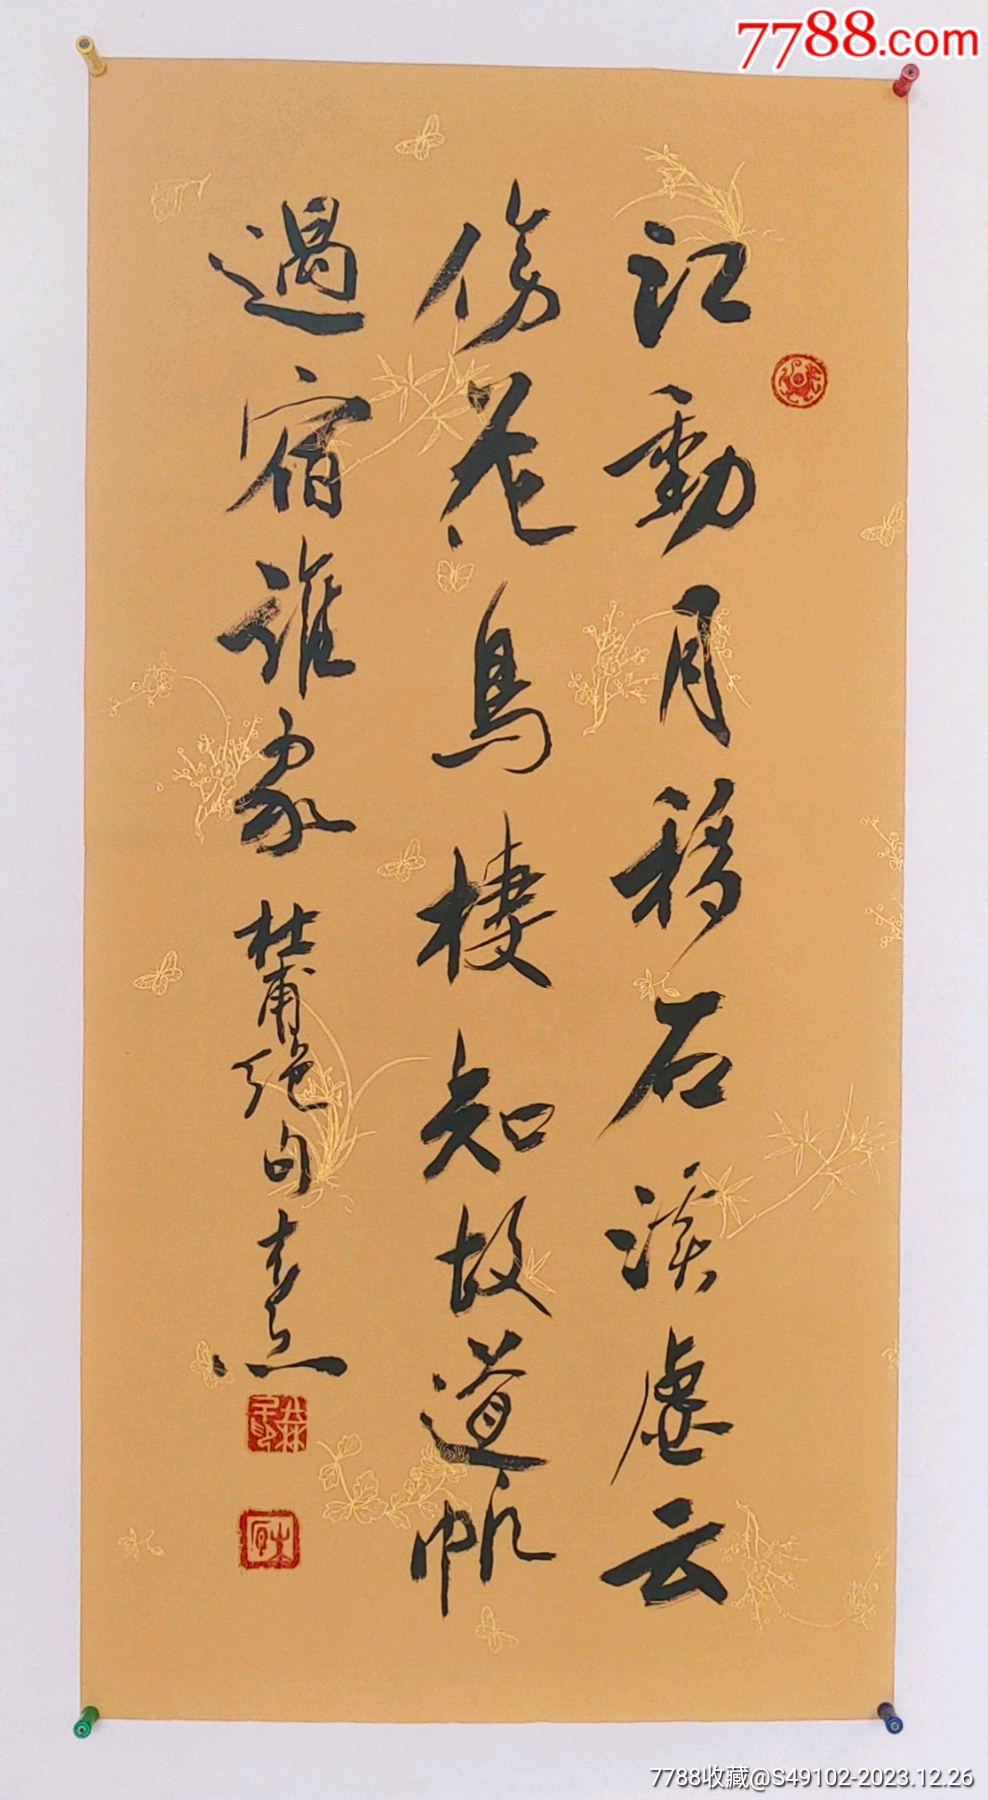 7788.com
江動月移石溪虚云
傍花鳥棲知故道帆
過宿誰家 杜甫绝句
7788收藏@S49102-2023.12.26